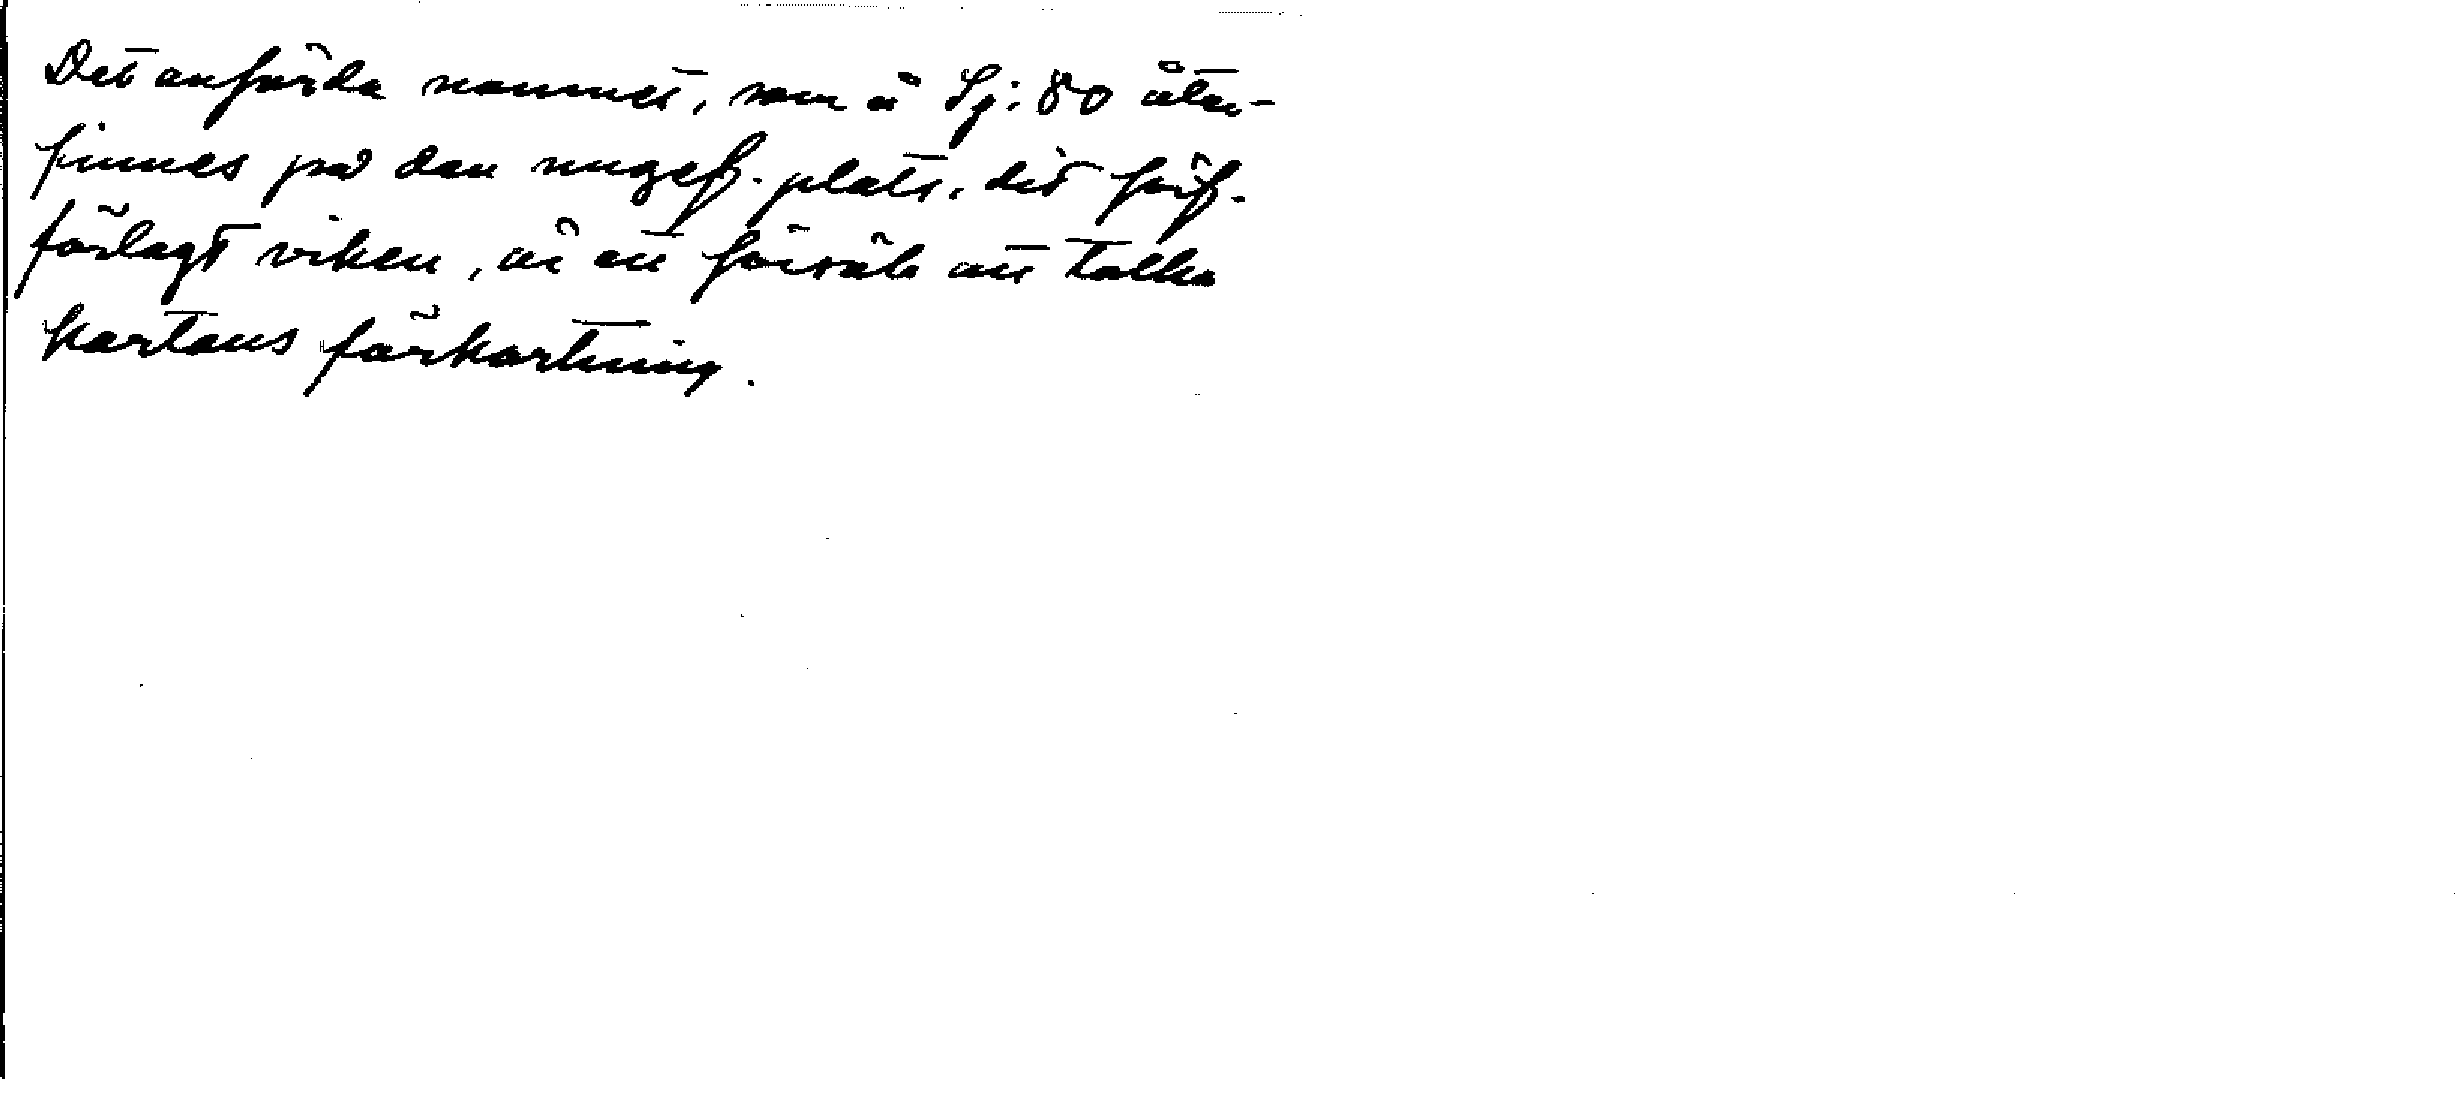 Det anförda namnet, som å Sj: 80 åter-
finnes på den ungef. plats, dit förf.
förlagt viken, är ett försök att tolka
kartans förkortning.